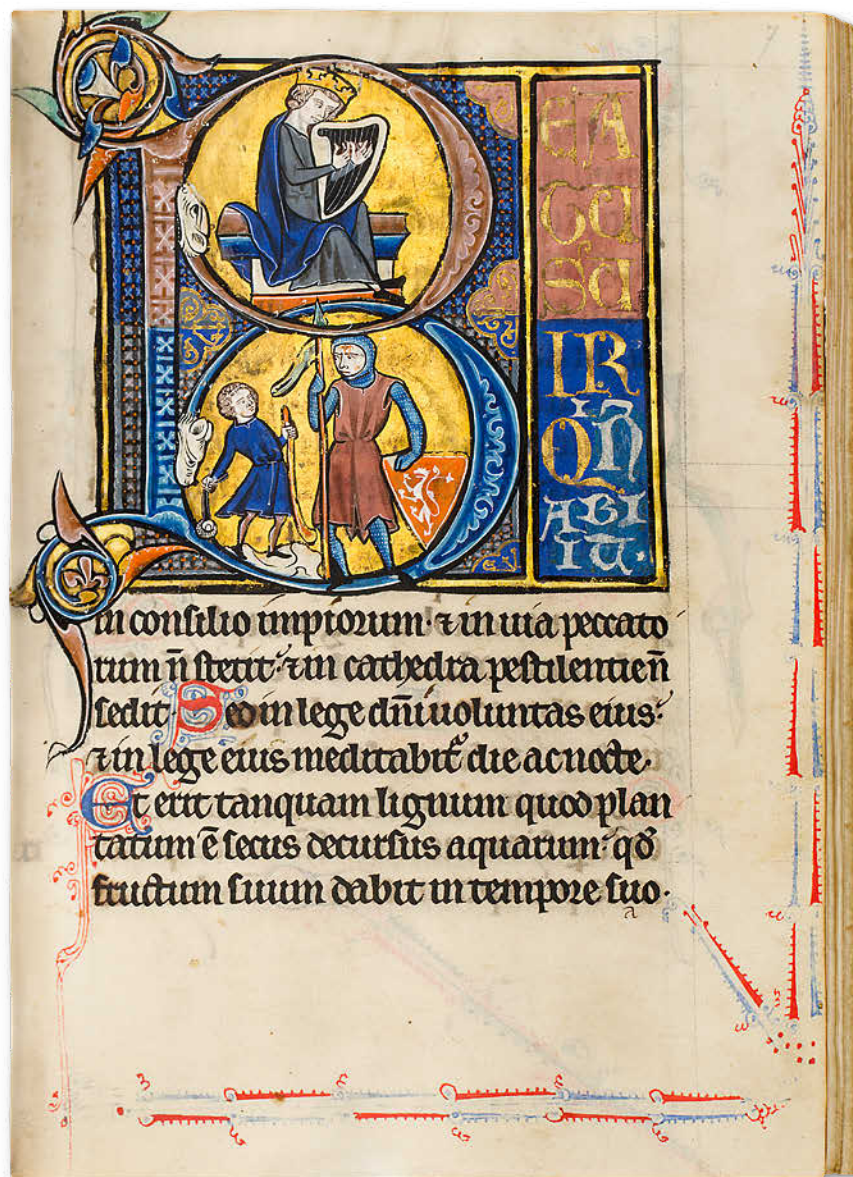 7
B
EA
TU
SU
IR
Qͥ N̄
ABI
IT·
in consilio impiorum· ⁊ in uia peccato
rum n̄ stetit: ⁊ in cathedra pestilentie n̄
sedit· Sed in lege dn̄i uoluntas eius:
⁊ in lege eius meditabit᷑ die ac nocte·
Et erit tanquam lignum quod plan
tatum ē secus decursus aquarum: qd̄
fructum suum dabit in tempore suo·
a